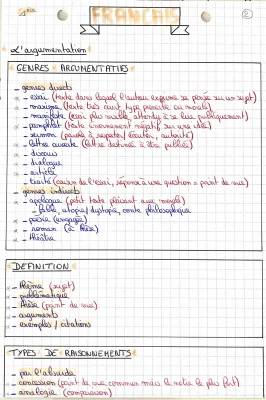 1ère
FRANCAIS
2
L'argumentation
GENRES ARGUMENTATIFS
genres directs
- essai (texte dans lequel l'auteur exprime sa pensée sur un sujet)
- maxime (texte très court type proverbe ou morale)
- manifeste (essai plus visible, à être lue publiquement)
- pamphlet (texte énormément négatif sur une idée)
- sermon (parole à respecter, autorité)
- lettre ouverte (lettre destinée à être publiée)
- discours
- dialogue
- article
- traité (cousin de l'essai, réponse à une question = point de vue)
genres indirects
- apologue (petit texte plaisant avec morale)
- fable, utopie/dystopie, conte philosophique
- poésie (engagée)
- roman (à thèse)
- théâtre
DEFINITION
- thème (sujet)
- problématique
- thèse (point de vue)
- arguments
- exemples / citations
TYPES DE RAISONNEMENTS
- par l'absurde
- concession (point de vue commun mais le notre le plus fort)
- analogie (comparaison)